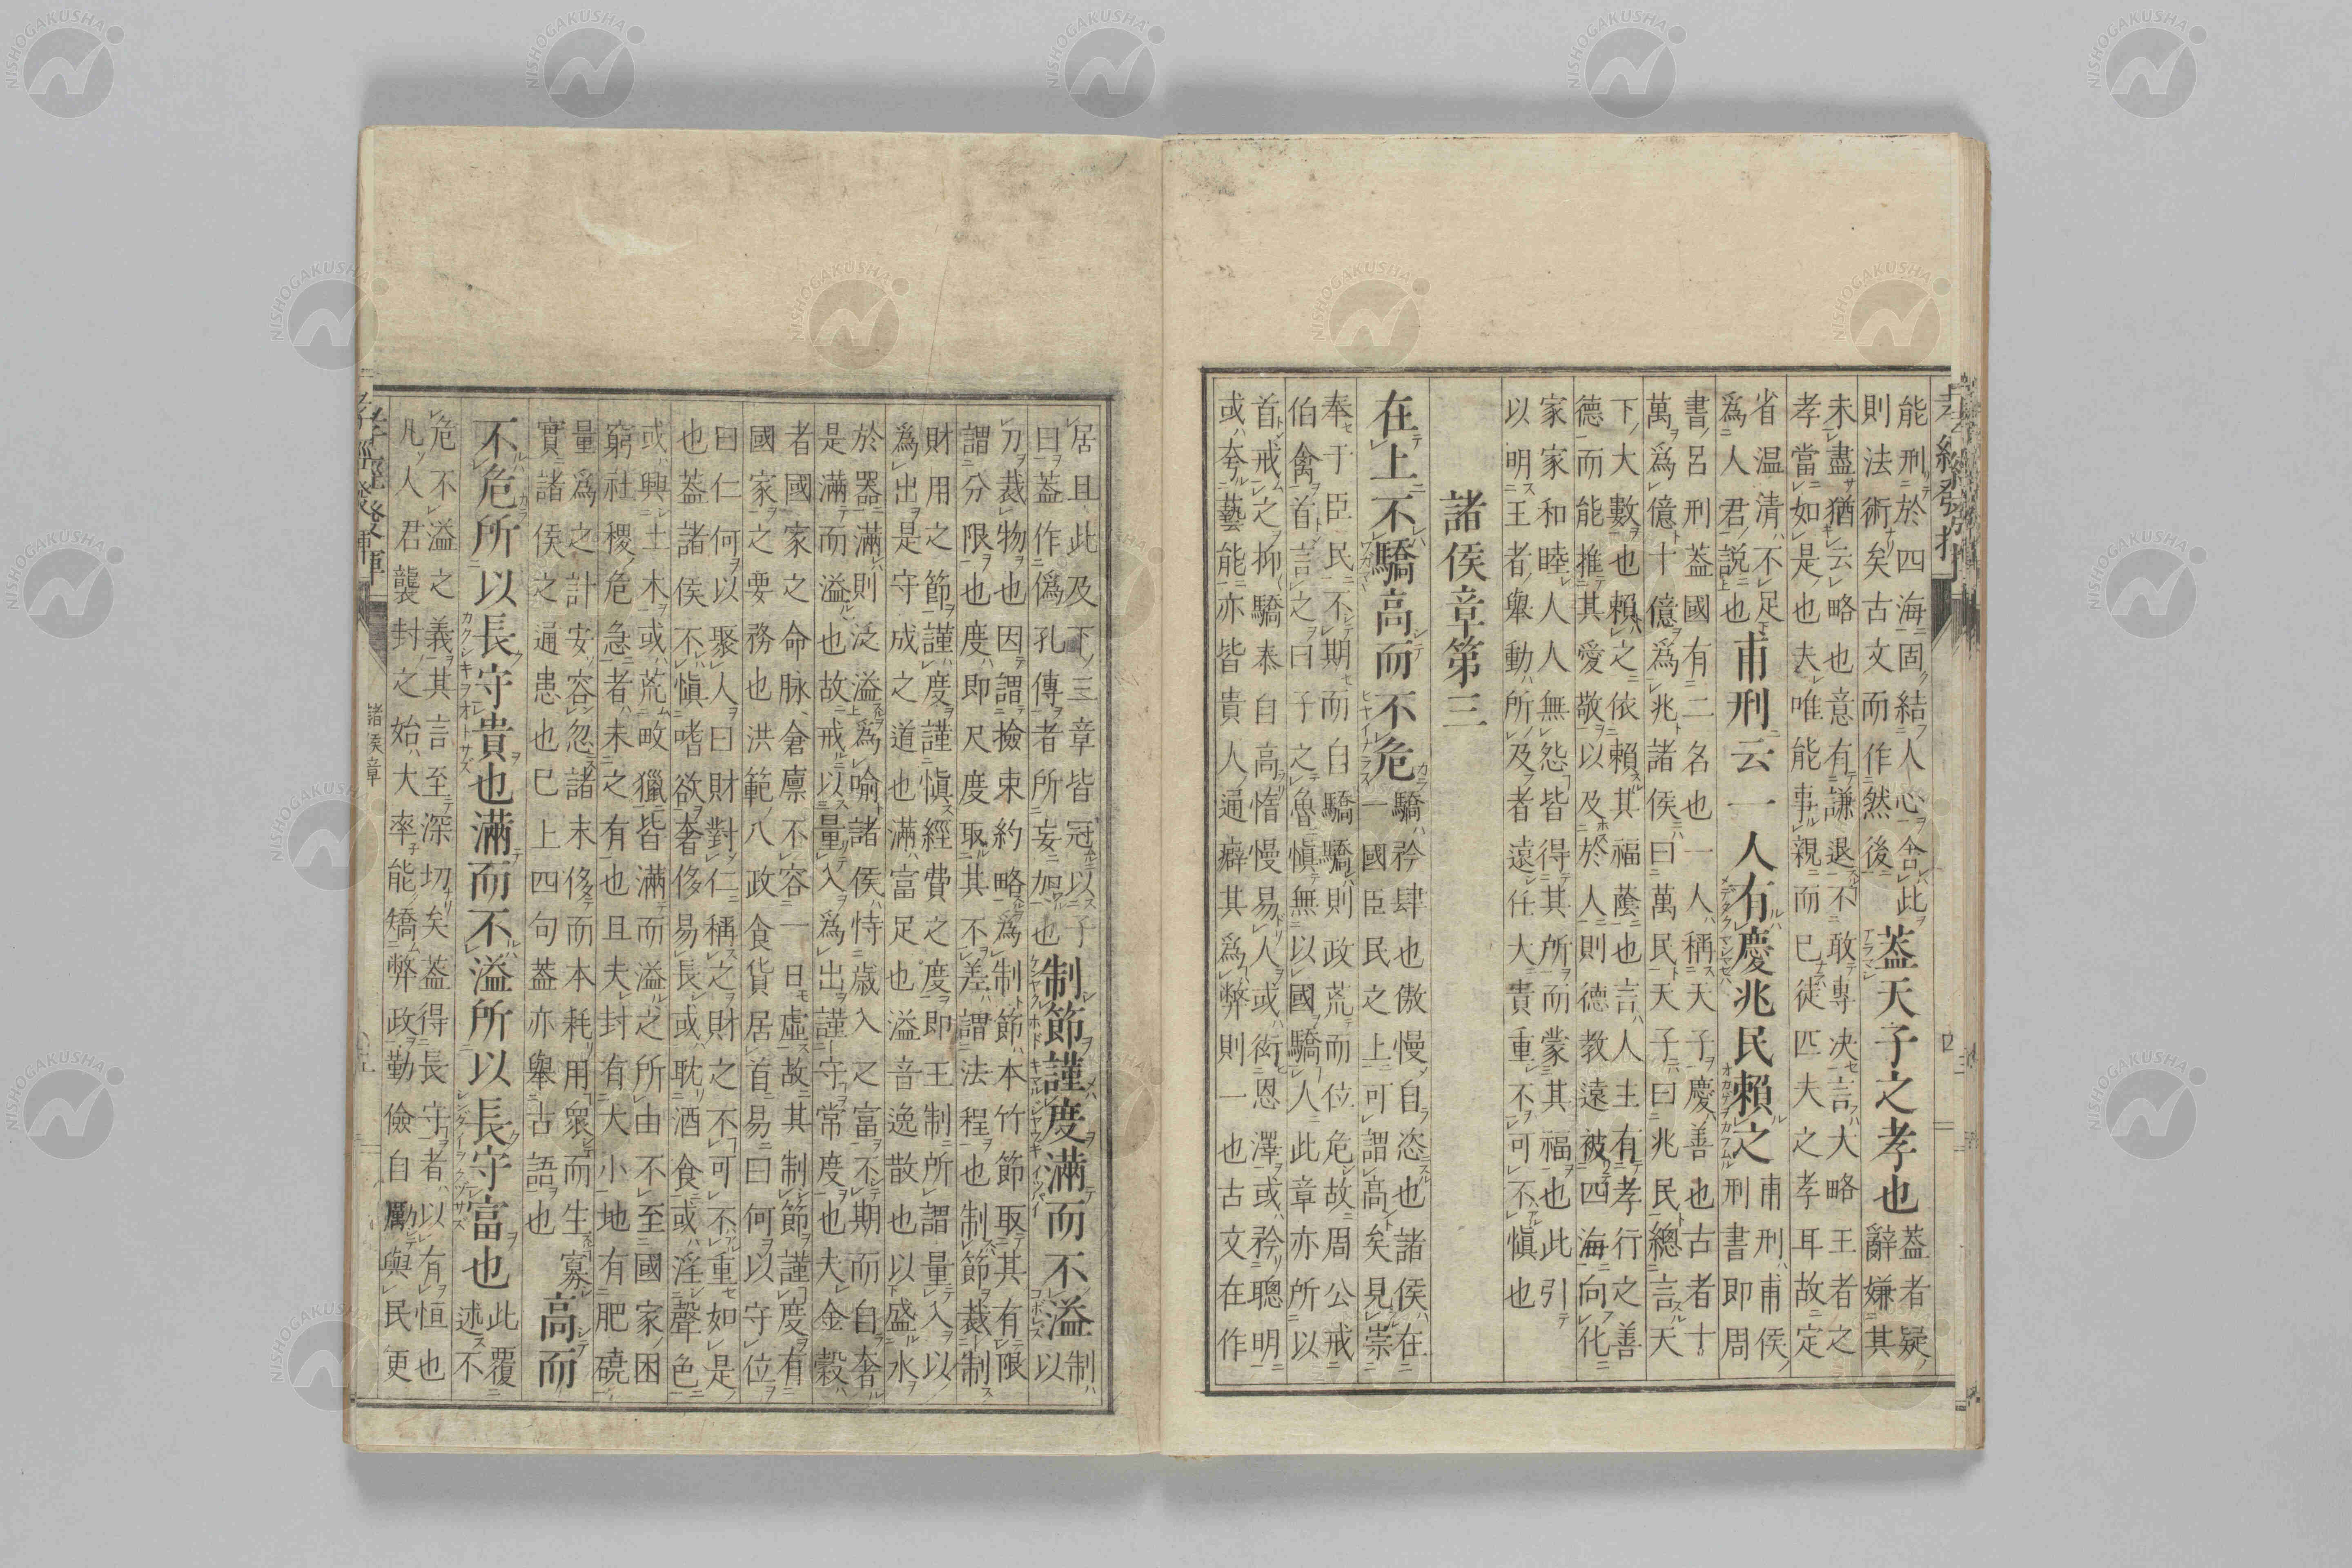 能刑於四海固結人心舍此
則法術矣古文而作然後
蓋天子之孝也
蓋者疑
辭嫌其
未盡猶云略也意有謙退不敢專決言大略王者之
孝當如是也夫唯能事親而已徒匹夫之孝耳故定
省温清不足
爲人君説也
甫刑云一人有慶兆民賴之
甫刑甫侯
刑書即周
書呂刑蓋國有二名也一人稱天子慶善也古者十
萬爲億十億爲兆諸侯曰萬民天子曰兆民總言天
下大數也賴之依賴其福蔭也言人主有孝行之善
德而能推其愛敬以及於人則德教遠被四海向化
家家和睦人人無怨皆得其所而蒙其福也此引
以明王者舉動所及者遠任大責重不可不愼也
諸侯章第三
在上不驕高而不危
驕矜肆也傲慢自恣也諸侯在
一國臣民之上可謂高矣見崇
奉于臣民不期而自驕驕則政荒而位危故周公戒
伯禽首言之曰子之魯愼無以國驕人此章亦所以
首戒之抑驕泰自高惰慢易人或衒恩澤或矜聰明
或夸藝能亦皆貴人通癖其爲弊則一也古文在作
居且此及下三章皆冠以子
曰蓋作僞孔傳者所妄加也
制節謹度滿而不溢
制
以
刀裁物也因謂撿束約略爲制節本竹節取其有限
謂分限也度即尺度取其不差謂法程也制節裁制
財用之節謹度謹愼經費之度即王制所謂量入以
爲出是守成之道也滿富足也溢音逸散也以盛水
於器滿則泛溢爲喻諸侯恃歳入之富不期而自奢
是滿而溢也故戒以量入爲出謹守常度也夫金穀
者國家之命脉倉廪不容一日虚故其制節謹度有
國家之要務也洪範八政食貨居首易曰何以守位
曰仁何以聚人曰財對仁稱之財之不可不重如是
也蓋諸侯不愼嗜欲奢侈易長或耽酒食或淫聲色
或興土木或荒畋獵皆滿而溢之所由不至國家困
窮社稷危急者未之有也且夫封有大小地有肥磽
量爲之計安容忽諸末侈而本耗用衆而生寡
實諸侯之通患也已上四句蓋亦舉古語也
高而
不危所以長守貴也滿而不溢所以長守富也
此覆
述不
危不溢之義其言至深切矣蓋得長守者以有恒也
凡人君襲封之始大率能矯弊政勤儉自勵與民更
諸侯章